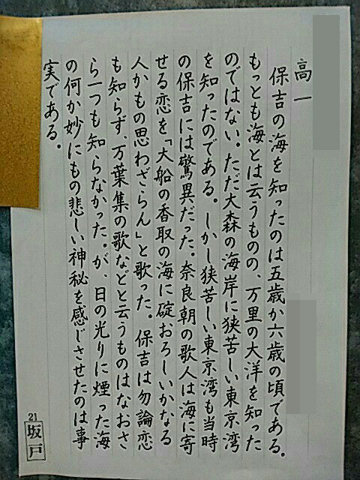 高一
保吉の海を知ったのは五歳か六歳の頃である。
もっとも海とは云うものの、万里の大洋を知った
のではない。ただ大森の海岸に狭苦しい東京湾
を知ったのである。しかし狭苦しい東京湾も当時
の保吉には驚異だった。奈良朝の歌人は海に寄
せる恋を「大船の香取の海に碇おろしいかなる
人かもの思わざらん」と歌った。保吉は勿論恋
も知らず、万葉集の歌などと云うものはなおさ
ら一つも知らなかった。が、日の光りに煙った海
の何か妙にもの悲しい神秘を感じさせたのは事
実である。
21
坂戸